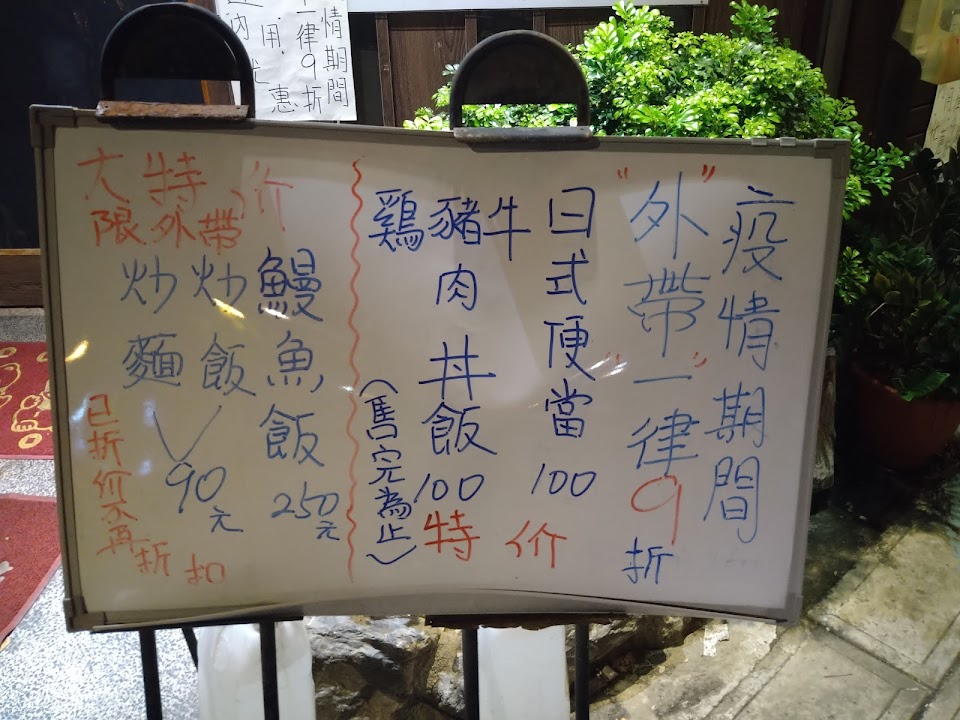 情期間
一律9折
用
惠
疫情期間
"外帶"一律9折
日式便當100
牛
豬肉丼飯100
鷄
特价
(馬完為止)
大特价
限外帶
鰻魚飯250元
炒飯
炒麵
90元
已折价不再折扣